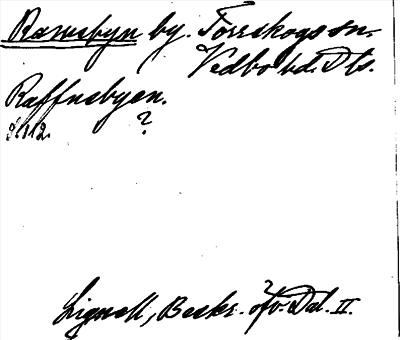 Ramsbyn by. Torrskogs sn.
Vedbo hd. Dls.
Raffnsbyen.
?
Lignell, Beskr. öfv. Dal. II.